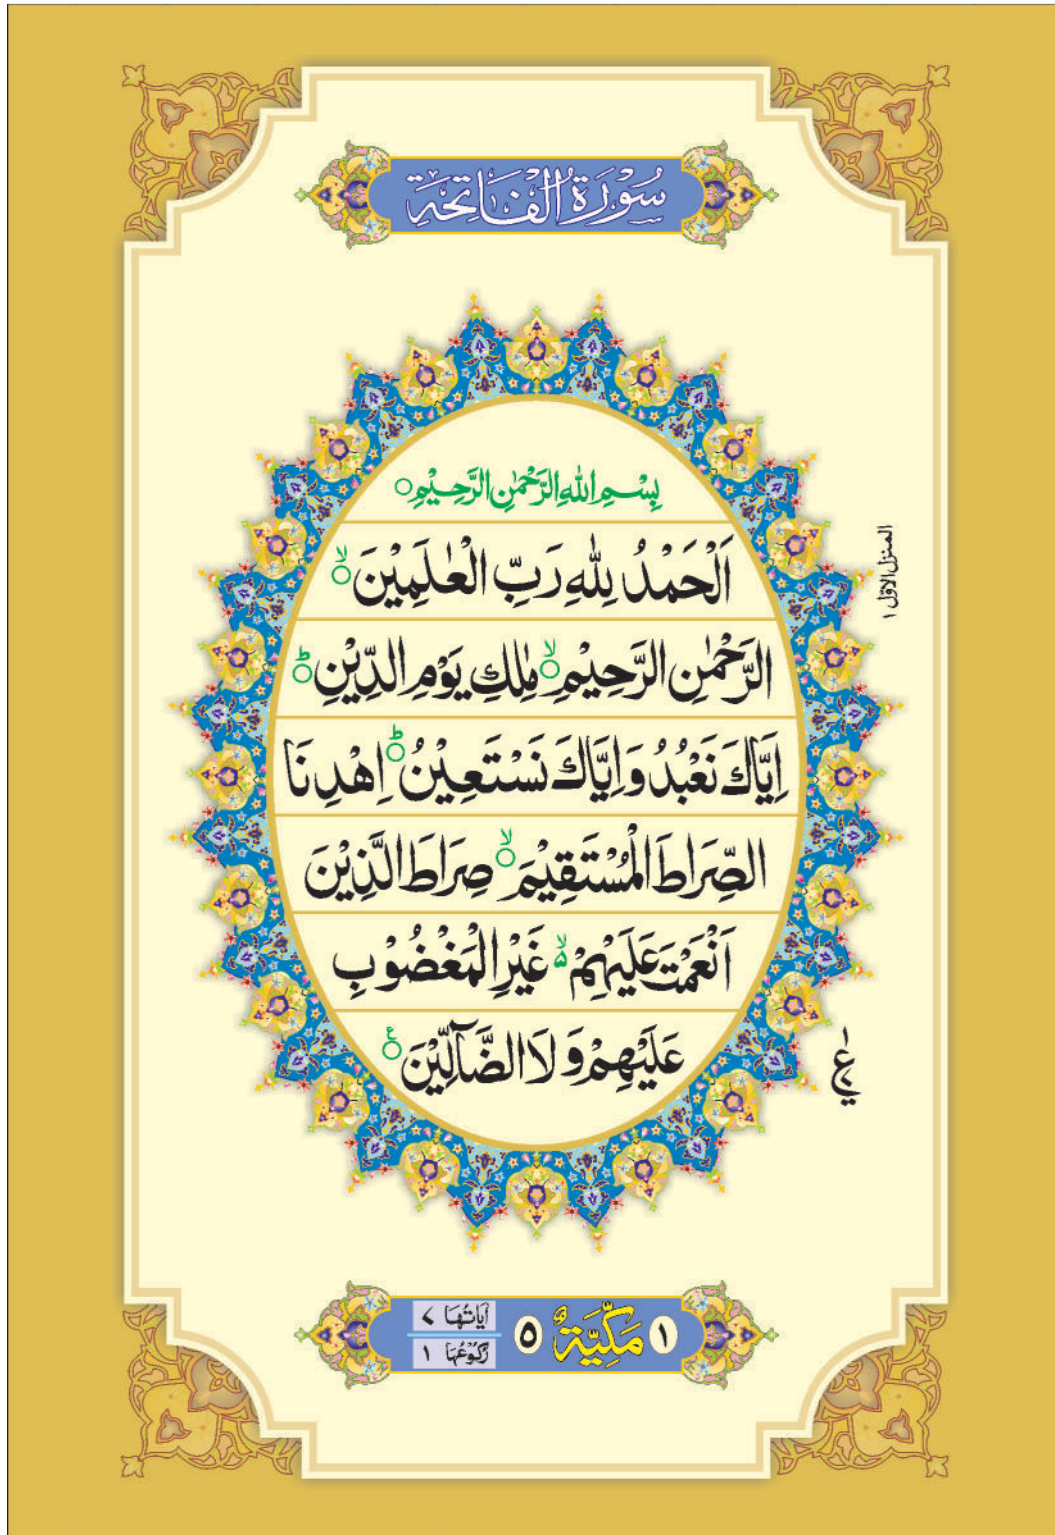 سُوْرَةُ الْفَاتِحَةِ
بِسْمِ اللّٰهِ الرَّحْمٰنِ الرَّحِيْمِ ○
اَلْحَمْدُ لِلّٰهِ رَبِّ الْعٰلَمِيْنَ ۙ○
الرَّحْمٰنِ الرَّحِيْمِ ۙ○ مٰلِكِ يَوْمِ الدِّيْنِ ؕ○
اِيَّاكَ نَعْبُدُ وَاِيَّاكَ نَسْتَعِيْنُ ؕ○ اِهْدِنَا
الصِّرَاطَ الْمُسْتَقِيْمَ ۙ○ صِرَاطَ الَّذِيْنَ
اَنْعَمْتَ عَلَيْهِمْ ۙ۵ غَيْرِ الْمَغْضُوْبِ
عَلَيْهِمْ وَلَا الضَّآلِّيْنَ ○ع
المنزل الاوّل ۱
ع ۱
۱ مَكِّيَّةٌ ۵
اٰيَاتُهَا ۷
رُكُوْعُهَا ۱